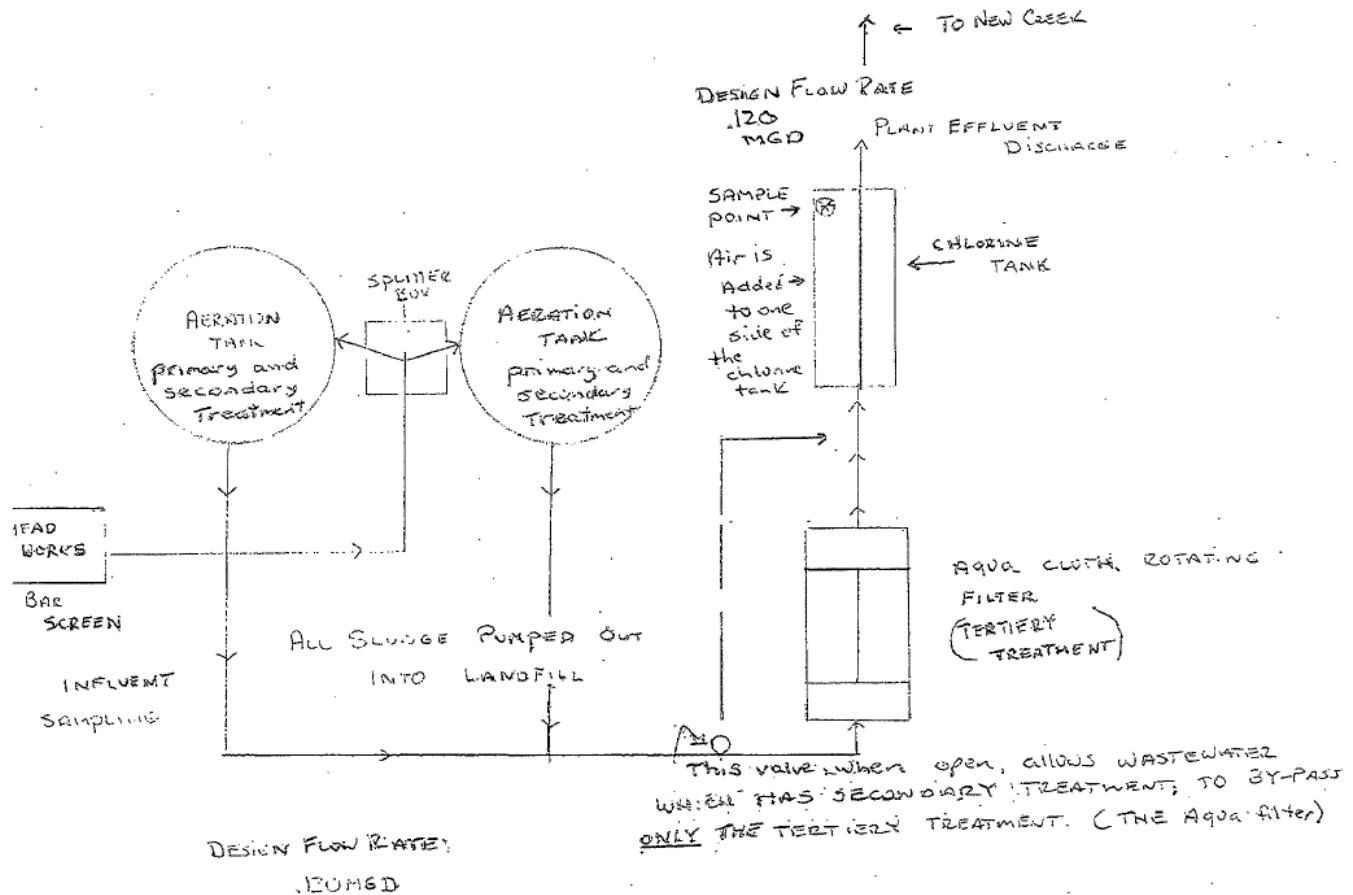 ← TO NEW CREEK
DESIGN FLOW RATE
.120
MGD
PLANT EFFLUENT
DISCHARGE
SAMPLE
POINT →
Air is
Added →
to one
side of
the
chlorine
tank
CHLORINE
TANK
SPLITTER
BOX
AERATION
TANK
primary and
secondary
Treatment
AERATION
TANK
primary and
secondary
Treatment
HEAD
WORKS
BAR
SCREEN
INFLUENT
SAMPLING
ALL SLUDGE PUMPED OUT
INTO LANDFILL
AQUA CLOTH, ROTATING
FILTER
(TERTIERY
TREATMENT)
This valve, when open, allows WASTEWATER
WHICH HAS SECONDARY TREATMENT, TO BY-PASS
ONLY THE TERTIERY TREATMENT. (THE Aqua filter)
DESIGN FLOW RATE:
.120MGD